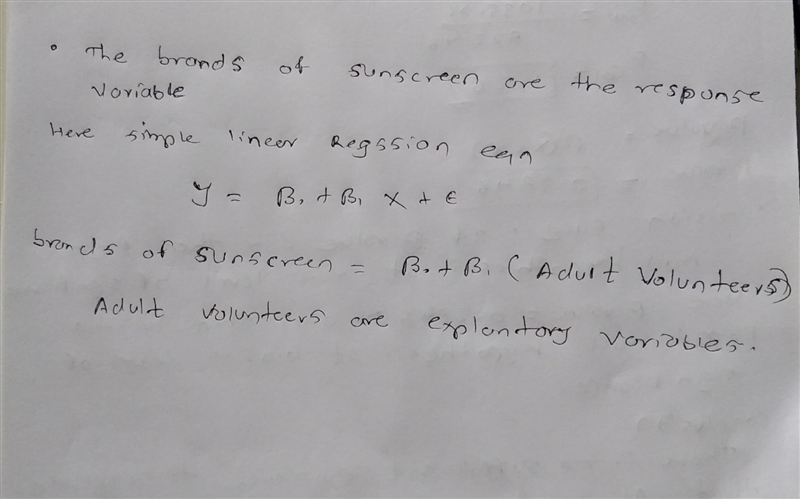 • The brands of sunscreen are the response
Variable
Here simple linear Regssion eqn
y = β₀ + β₁ x + ε
brands of sunscreen = β₀ + β₁ ( Adult Volunteers)
Adult volunteers are explantory variables.